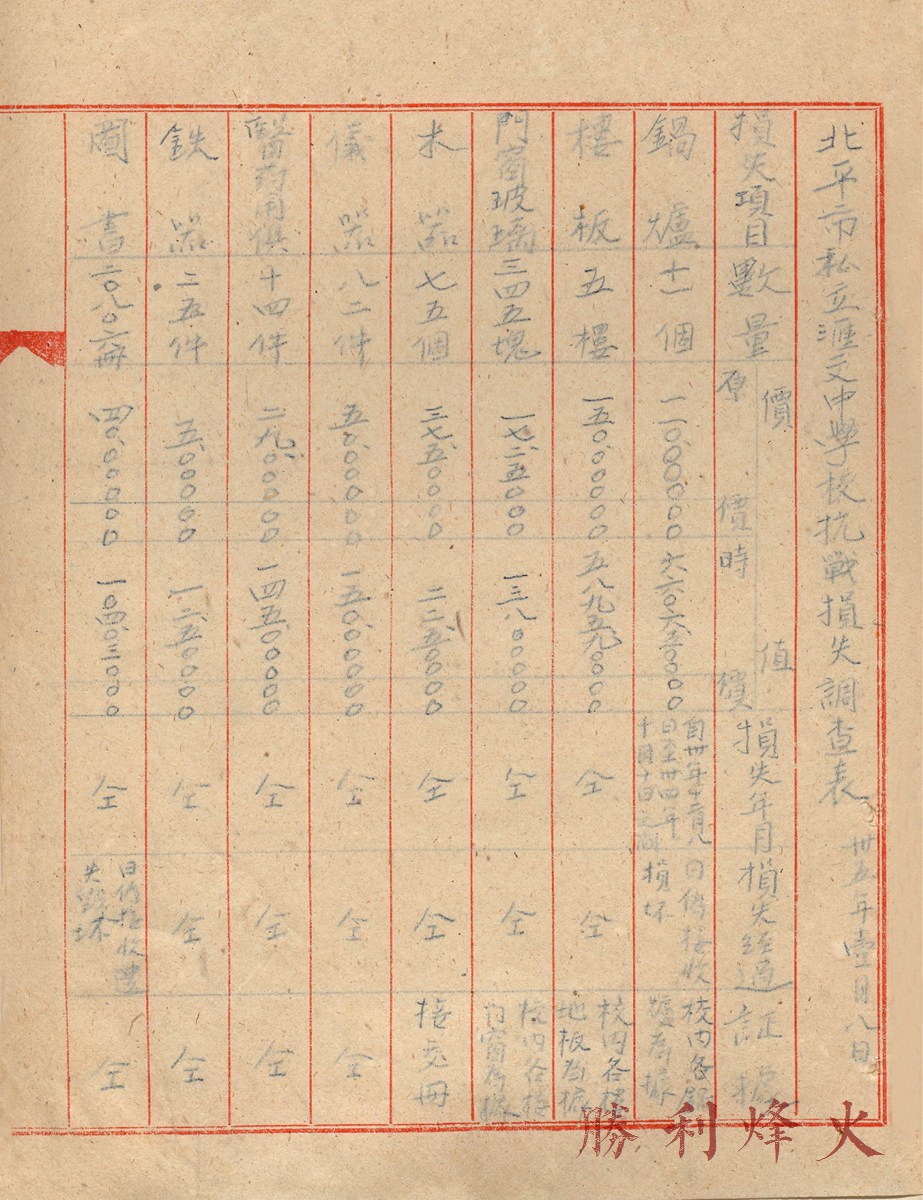 北平市私立滙文中學校抗戰損失調查表 卅五年壹月八日
損失項目 數量 價值 原價 時價 損失年月 損失經過 証據
鍋爐 十一個 一一〇〇〇〇〇〇 六六〇六五〇〇〇〇 自卅年十二月八日至卅四年十月十日之間 日偽接收損坏 校內各鍋爐為據
樓板 五樓 一五〇〇〇〇〇〇 五八九五九〇〇〇 仝 仝 校內各樓地板為據
門窗玻璃 三四五塊 一七二五〇〇〇 一三八〇〇〇〇 仝 仝 校內各樓門窗為據
木器 七五個 三七五〇〇〇〇 二二五〇〇〇〇〇 仝 仝 接交冊
儀器 八二件 五〇〇〇〇〇〇 一五〇〇〇〇〇〇 仝 仝 仝
醫药用俱 十四件 二九〇〇〇〇〇 一四五〇〇〇〇〇 仝 仝 仝
鉄器 二五件 五〇〇〇〇〇 一二五〇〇〇〇 仝 仝 仝
圖書 二〇八〇六冊 四〇〇〇〇〇〇 一〇四〇三〇〇〇 仝 日偽接收遺失毀坏 仝
勝利烽火